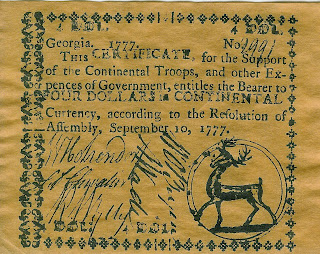 4 DOL. 4 DOL.
Georgia. 1777. No
THIS CERTIFICATE, for the Support
of the Continental Troops, and other Ex-
pences of Government, entitles the Bearer to
FOUR DOLLARS in CONTINENTAL
Currency, according to the Resolution of
Assembly, September 10, 1777.
4 DOL.